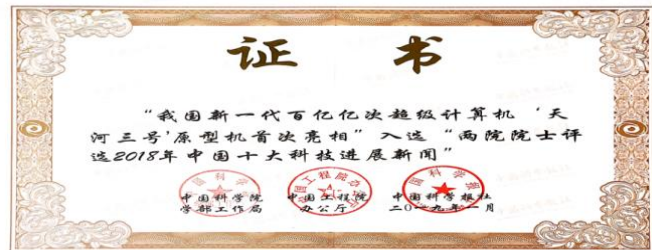 证书
“我国新一代百亿亿次超级计算机‘天
河三号’原型机首次亮相”入选“两院院士评
选2018年中国十大科技进展新闻”
中国科学院 中国工程院 中国科学报社
学部工作局 办公厅 二〇一九年一月